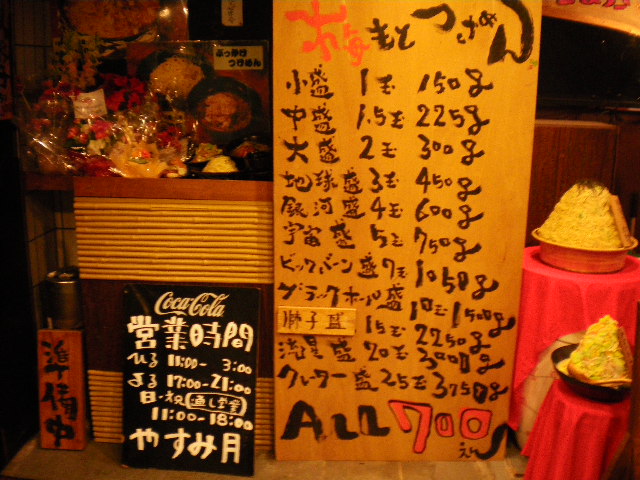 ぶっかけ
つけめん
梅もとつけめん
小盛 1玉 150g
中盛 1.5玉 225g
大盛 2玉 300g
地球盛 3玉 450g
銀河盛 4玉 600g
宇宙盛 5玉 750g
ビックバーン盛 7玉 1050g
ブラックホール盛 10玉 1500g
獅子盛 15玉 2250g
流星盛 20玉 3000g
クレーター盛 25玉 3750g
ALL 700えん
準備中
Coca-Cola
営業時間
ひる 11:00-3:00
よる 17:00-21:00
日・祝(通し営業)
11:00-18:00
やすみ月